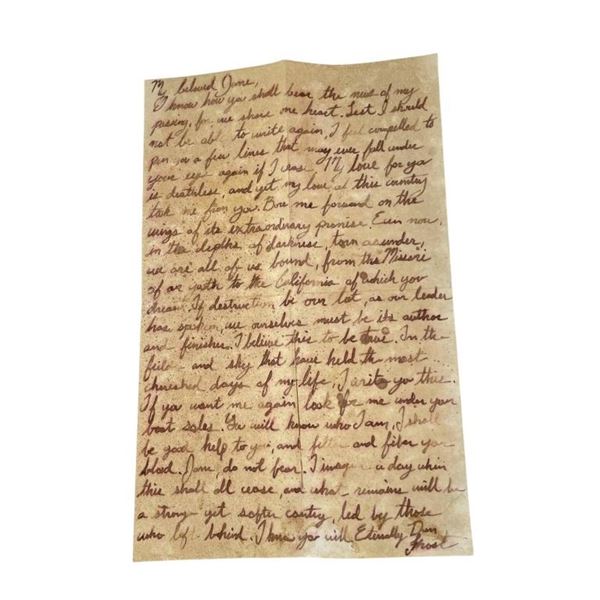 My beloved Jane,
I know how you shall bear the news of my
passing, for we share one heart. Lest I should
not be able to write again, I feel compelled to
pen you a few lines that may ever fall under
your eyes again if I cease. My love for you
is deathless, and yet my love of this country
took me from you. Bore me forward on the
wings of its extraordinary promise. Even now,
in the depths of darkness, torn asunder,
we are all of us bound, from the Missouri
of our youth to the California of which you
dream. If destruction be our lot, as our leader
has spoken, we ourselves must be its author
and finisher. I believe this to be true. In the
and sky that have held the most
cherished days of my life, I write you this.
If you want me again look for me under your
boot soles. You will know who I am, I shall
be good help to you, and filter and fiber your
blood. Jane do not fear. I imagine a day when
this shall all cease, and what remains will be
a stronger yet softer country, led by those
who left behind. I know you will Eternally
Frost